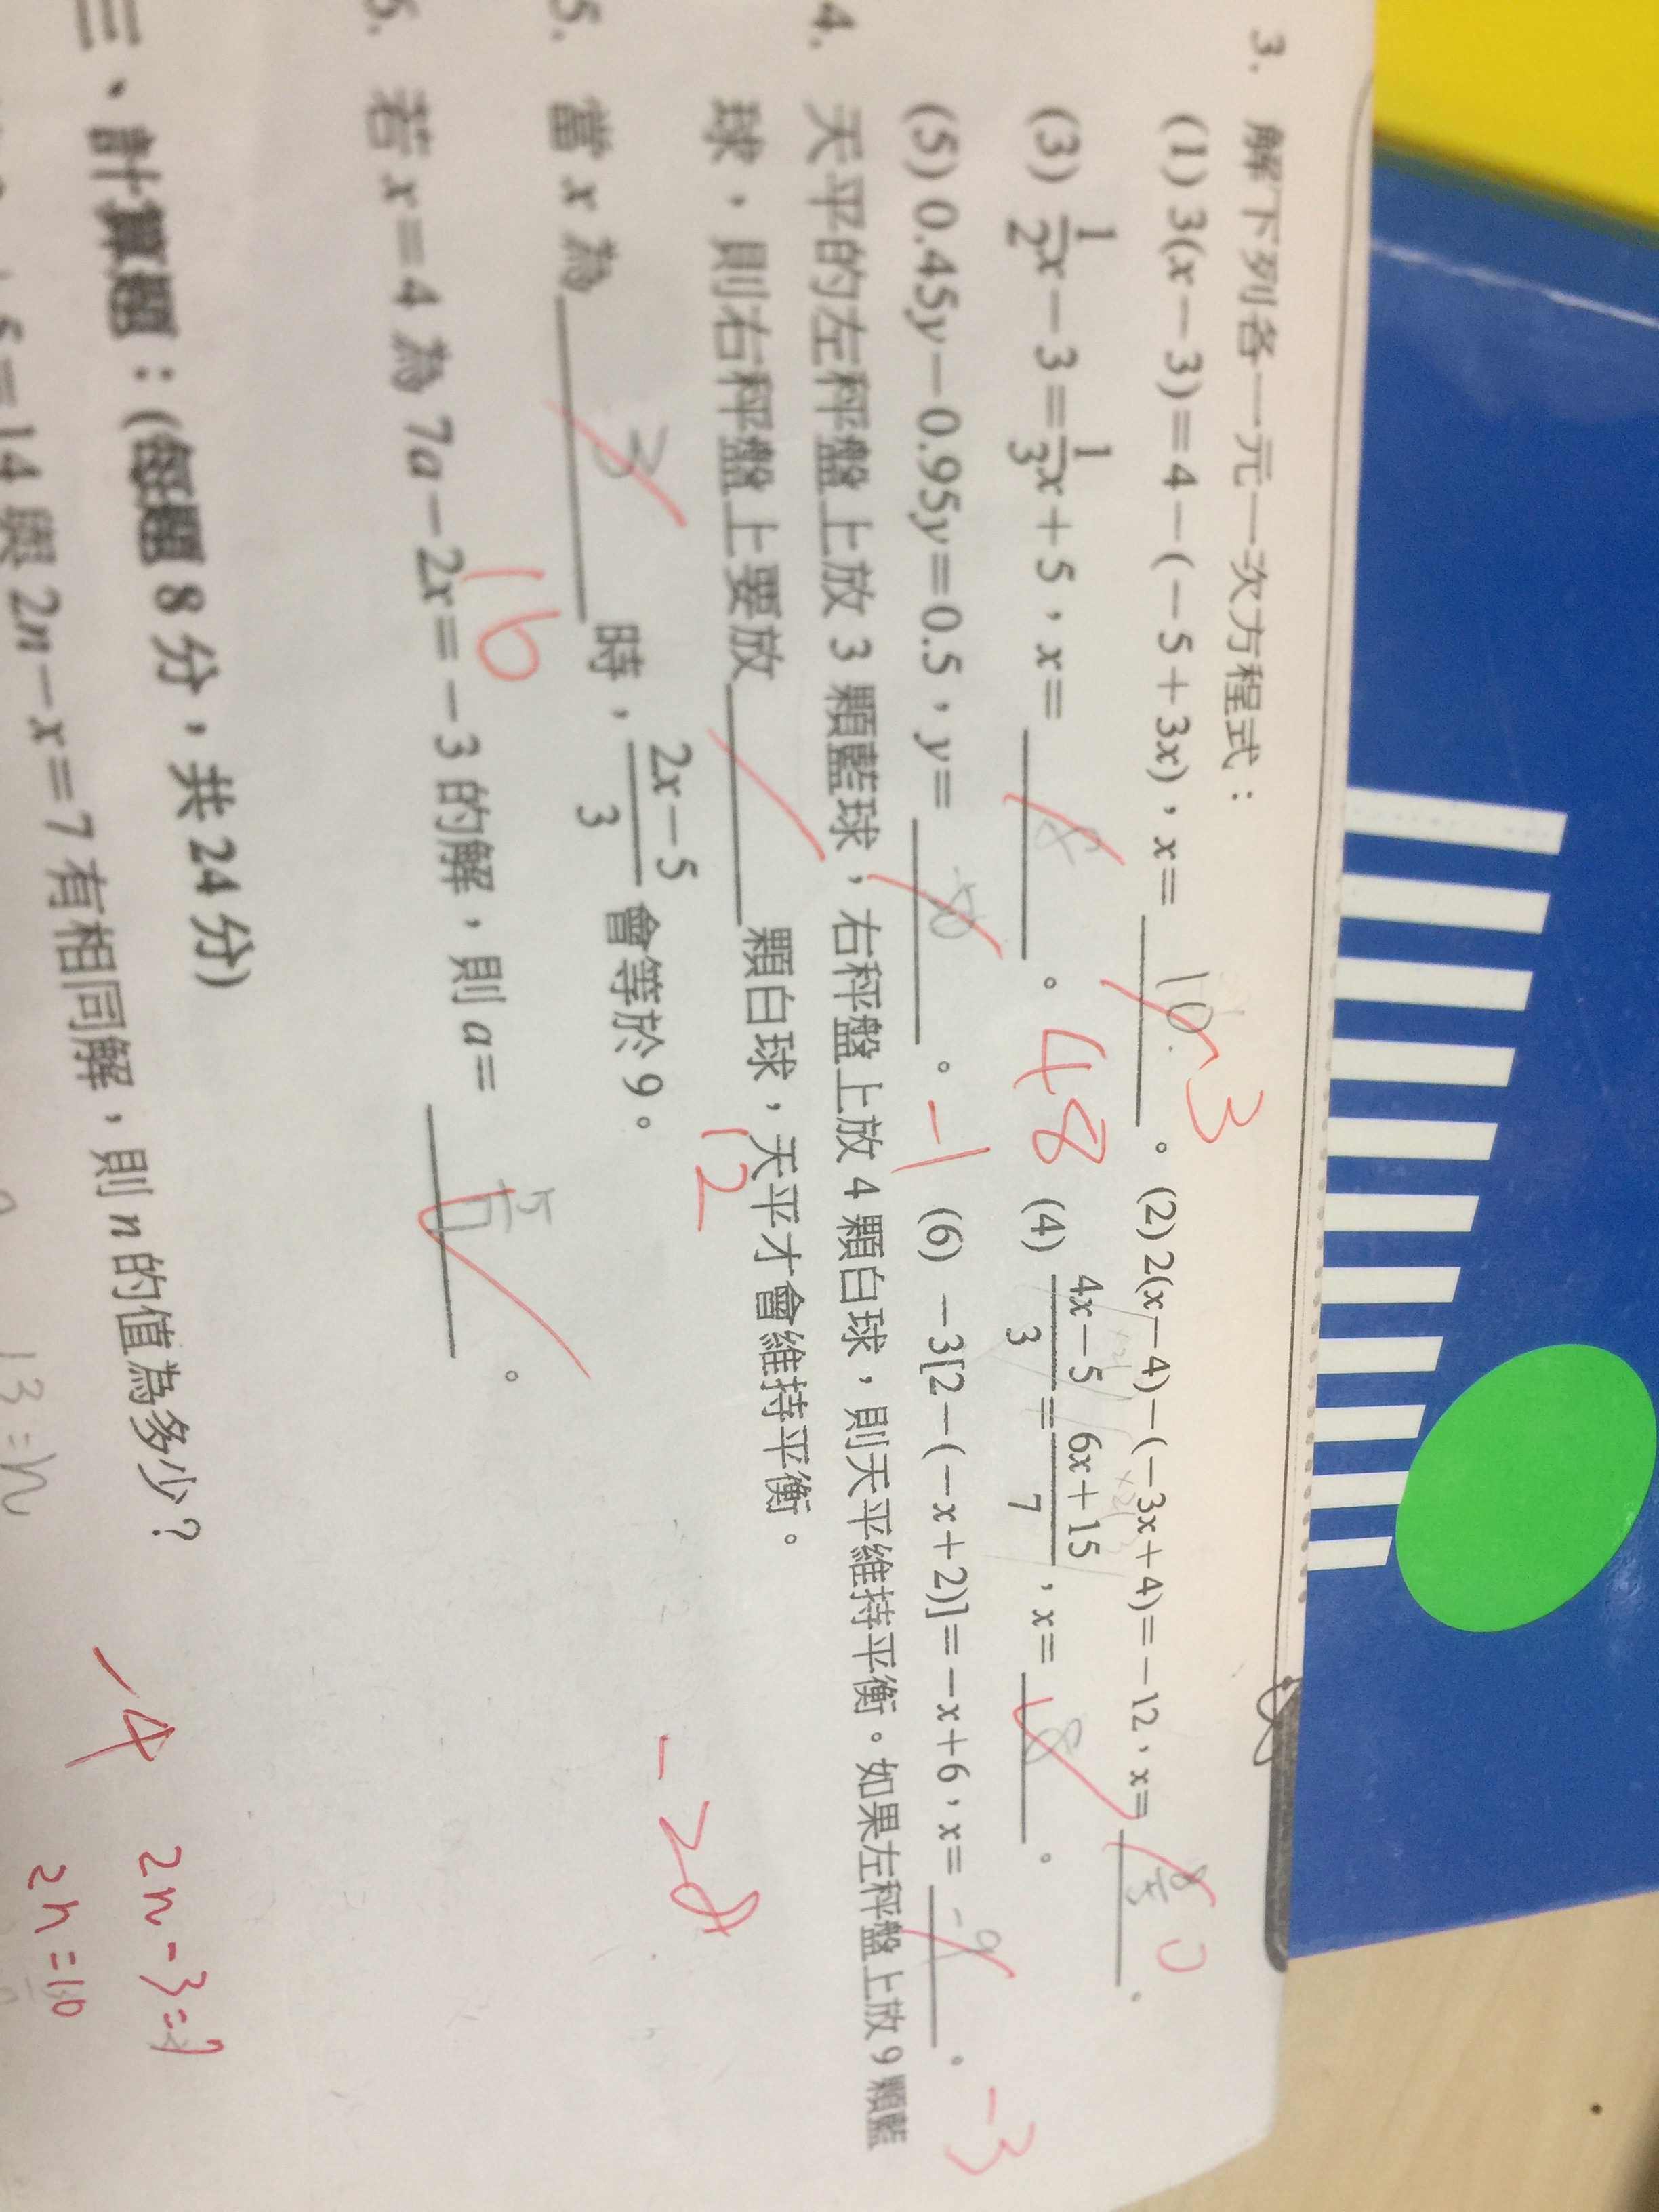 3. 解下列各一元一次方程式：
(1) 3(x－3)＝4－(－5＋3x)，x＝ 10 。 3 (2) 2(x－4)－(－3x＋4)＝－12，x＝ 8/5 。 0
(3) 1/2x－3＝1/3x＋5，x＝ 8 。 48 (4) (4x－5)/3＝(6x＋15)/7，x＝ 8 。
(5) 0.45y－0.95y＝0.5，y＝ 。 －1 (6) －3[2－(－x＋2)]＝－x＋6，x＝ －9 。 －3
4. 天平的左秤盤上放 3 顆藍球，右秤盤上放 4 顆白球，則天平維持平衡。如果左秤盤上放 9 顆藍
球，則右秤盤上要放 顆白球，天平才會維持平衡。
12
5. 當 x 為 3 時，(2x－5)/3 會等於 9。
16
－28
6. 若 x＝4 為 7a－2x＝－3 的解，則 a＝ 。
三、計算題：(每題 8 分，共 24 分)
＝14 與 2n－x＝7 有相同解，則 n 的值為多少？
13=n
－4
2n－3=7
2n=10